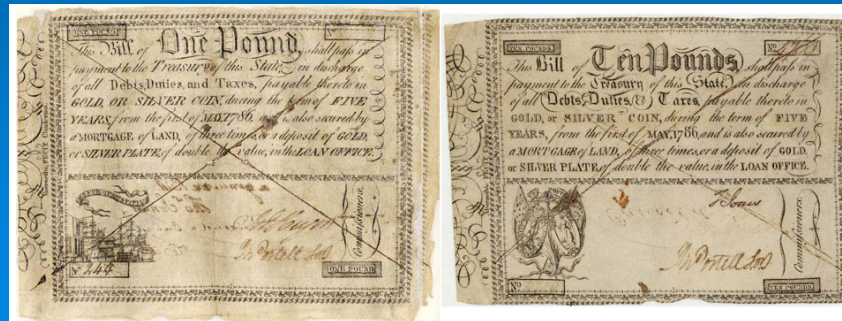 ONE POUND
This Bill of One Pound, shall pass in
payment to the Treasury of this State, in discharge
of all Debts, Duties, and Taxes, payable thereto in
GOLD, OR SILVER COIN, during the term of FIVE
YEARS, from the first of MAY, 1786, and is also secured by
a MORTGAGE of LAND, of three times, or a deposit of GOLD,
or SILVER PLATE, of double the value, in the LOAN OFFICE.
Commissioners.
No 244
ONE POUND
TEN POUNDS
No
This Bill of Ten Pounds, shall pass in
payment to the Treasury of this State, in discharge
of all Debts, Duties, & Taxes, payable thereto in
GOLD, or SILVER COIN, during the term of FIVE
YEARS, from the first of MAY, 1786, and is also secured by
a MORTGAGE of LAND, of three times, or a deposit of GOLD
or SILVER PLATE, of double the value, in the LOAN OFFICE.
Commissioners.
No
TEN POUNDS